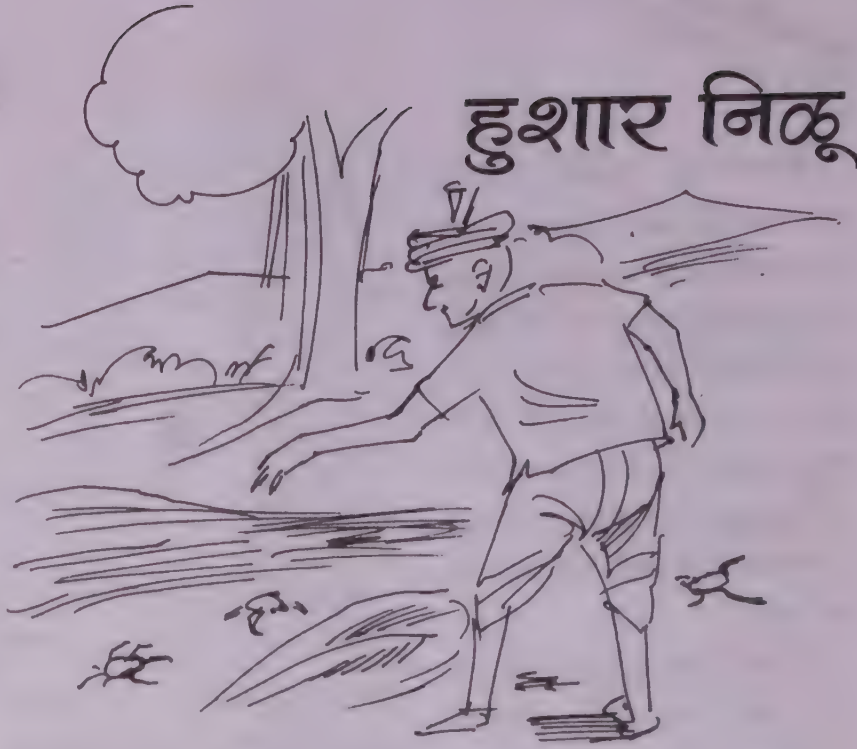 हुशार निळू